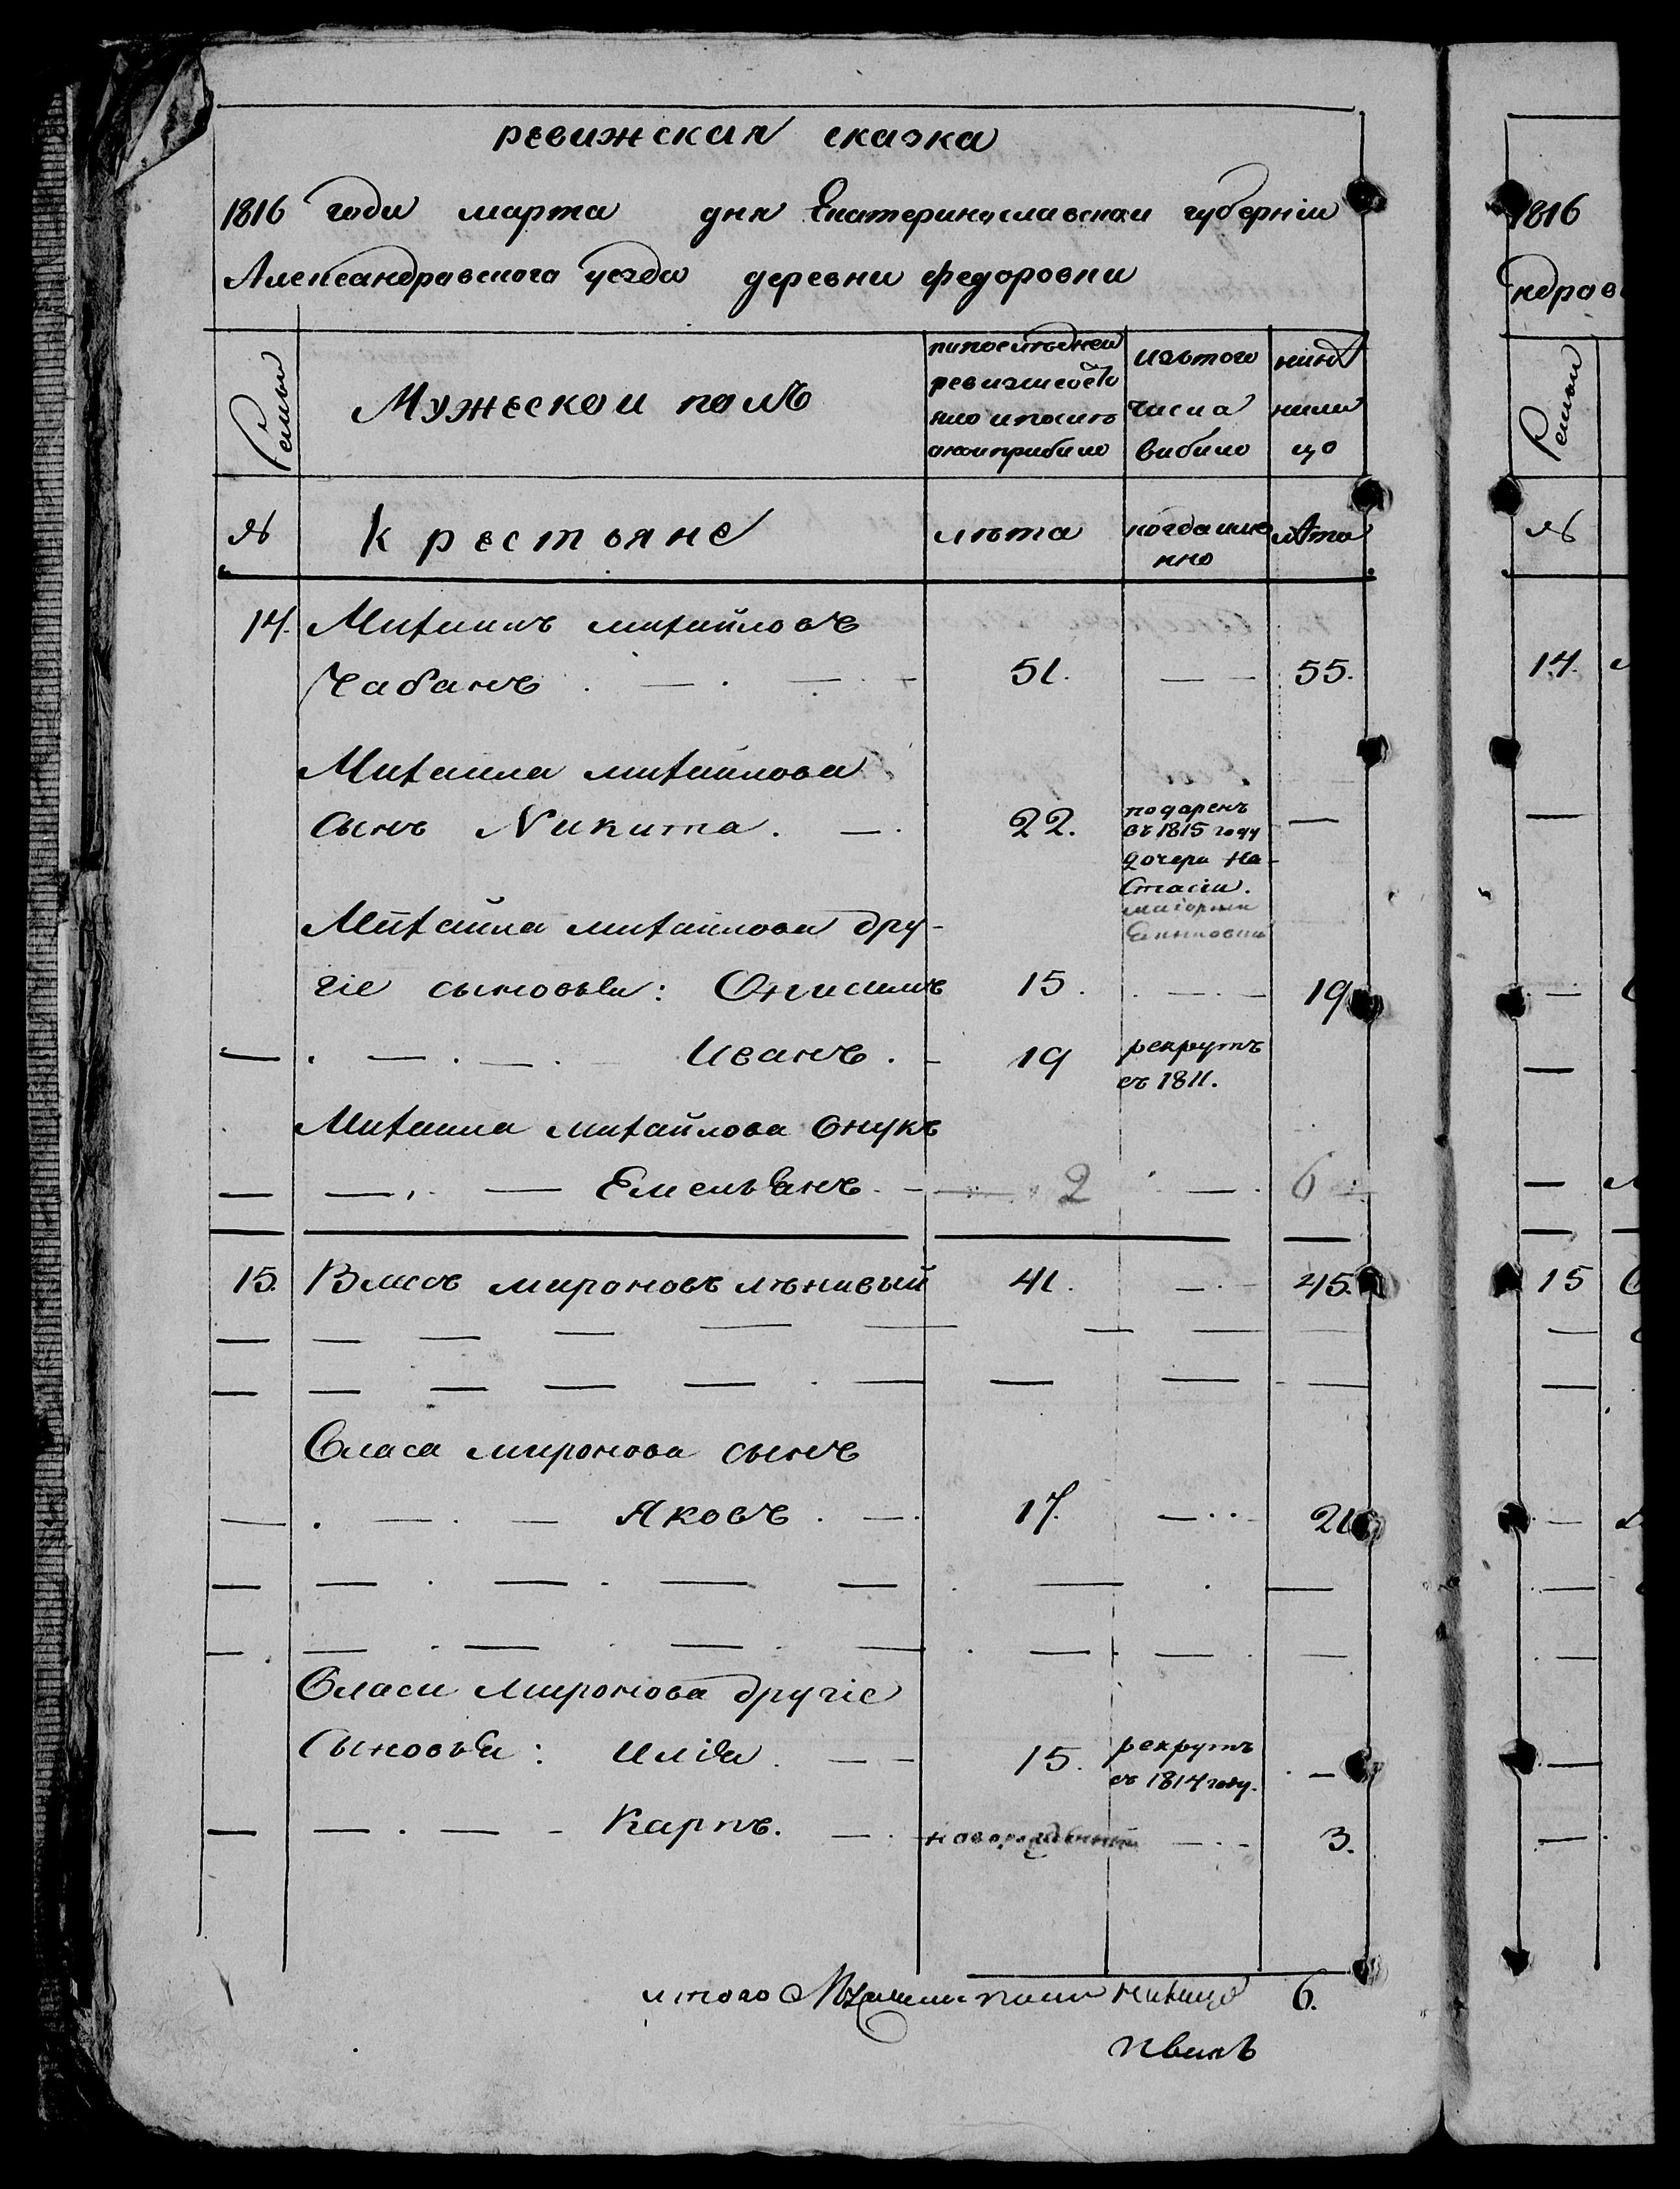 ревижская сказка
1816 года марта дня Екатеринославской губернiи
Александравского уезда деревни федоровки
Семьи
Мужеской полъ
изътого числа выбыло
ныне на лицо
№
Крестьяне
лѣта
когда имянно
лѣта
14. Михаилъ михайловъ
Чабанъ 51. 55.
Михаила михайлова
сынъ Никита. 22. подаренъ
въ 1815 году
дочери На-
стасiи.
Михайла михайлова дру-
гiе сыновья: Онисимъ 15. 19
Иванъ. 19 рекрутъ
въ 1811.
Михаила михайлова внукъ
Емельянъ. 2 6
15. Власъ мироновъ лѣнивый 41. 45.
Власа миронова сынъ
Яковъ. 17. 21
Власа миронова другiе
Сыновья: Илiя. 15. рекрутъ
въ 1814 году.
Карпъ. новорожденный 3.
итого налицо 6.
1816
ндрав
Семьи
№
14.
15